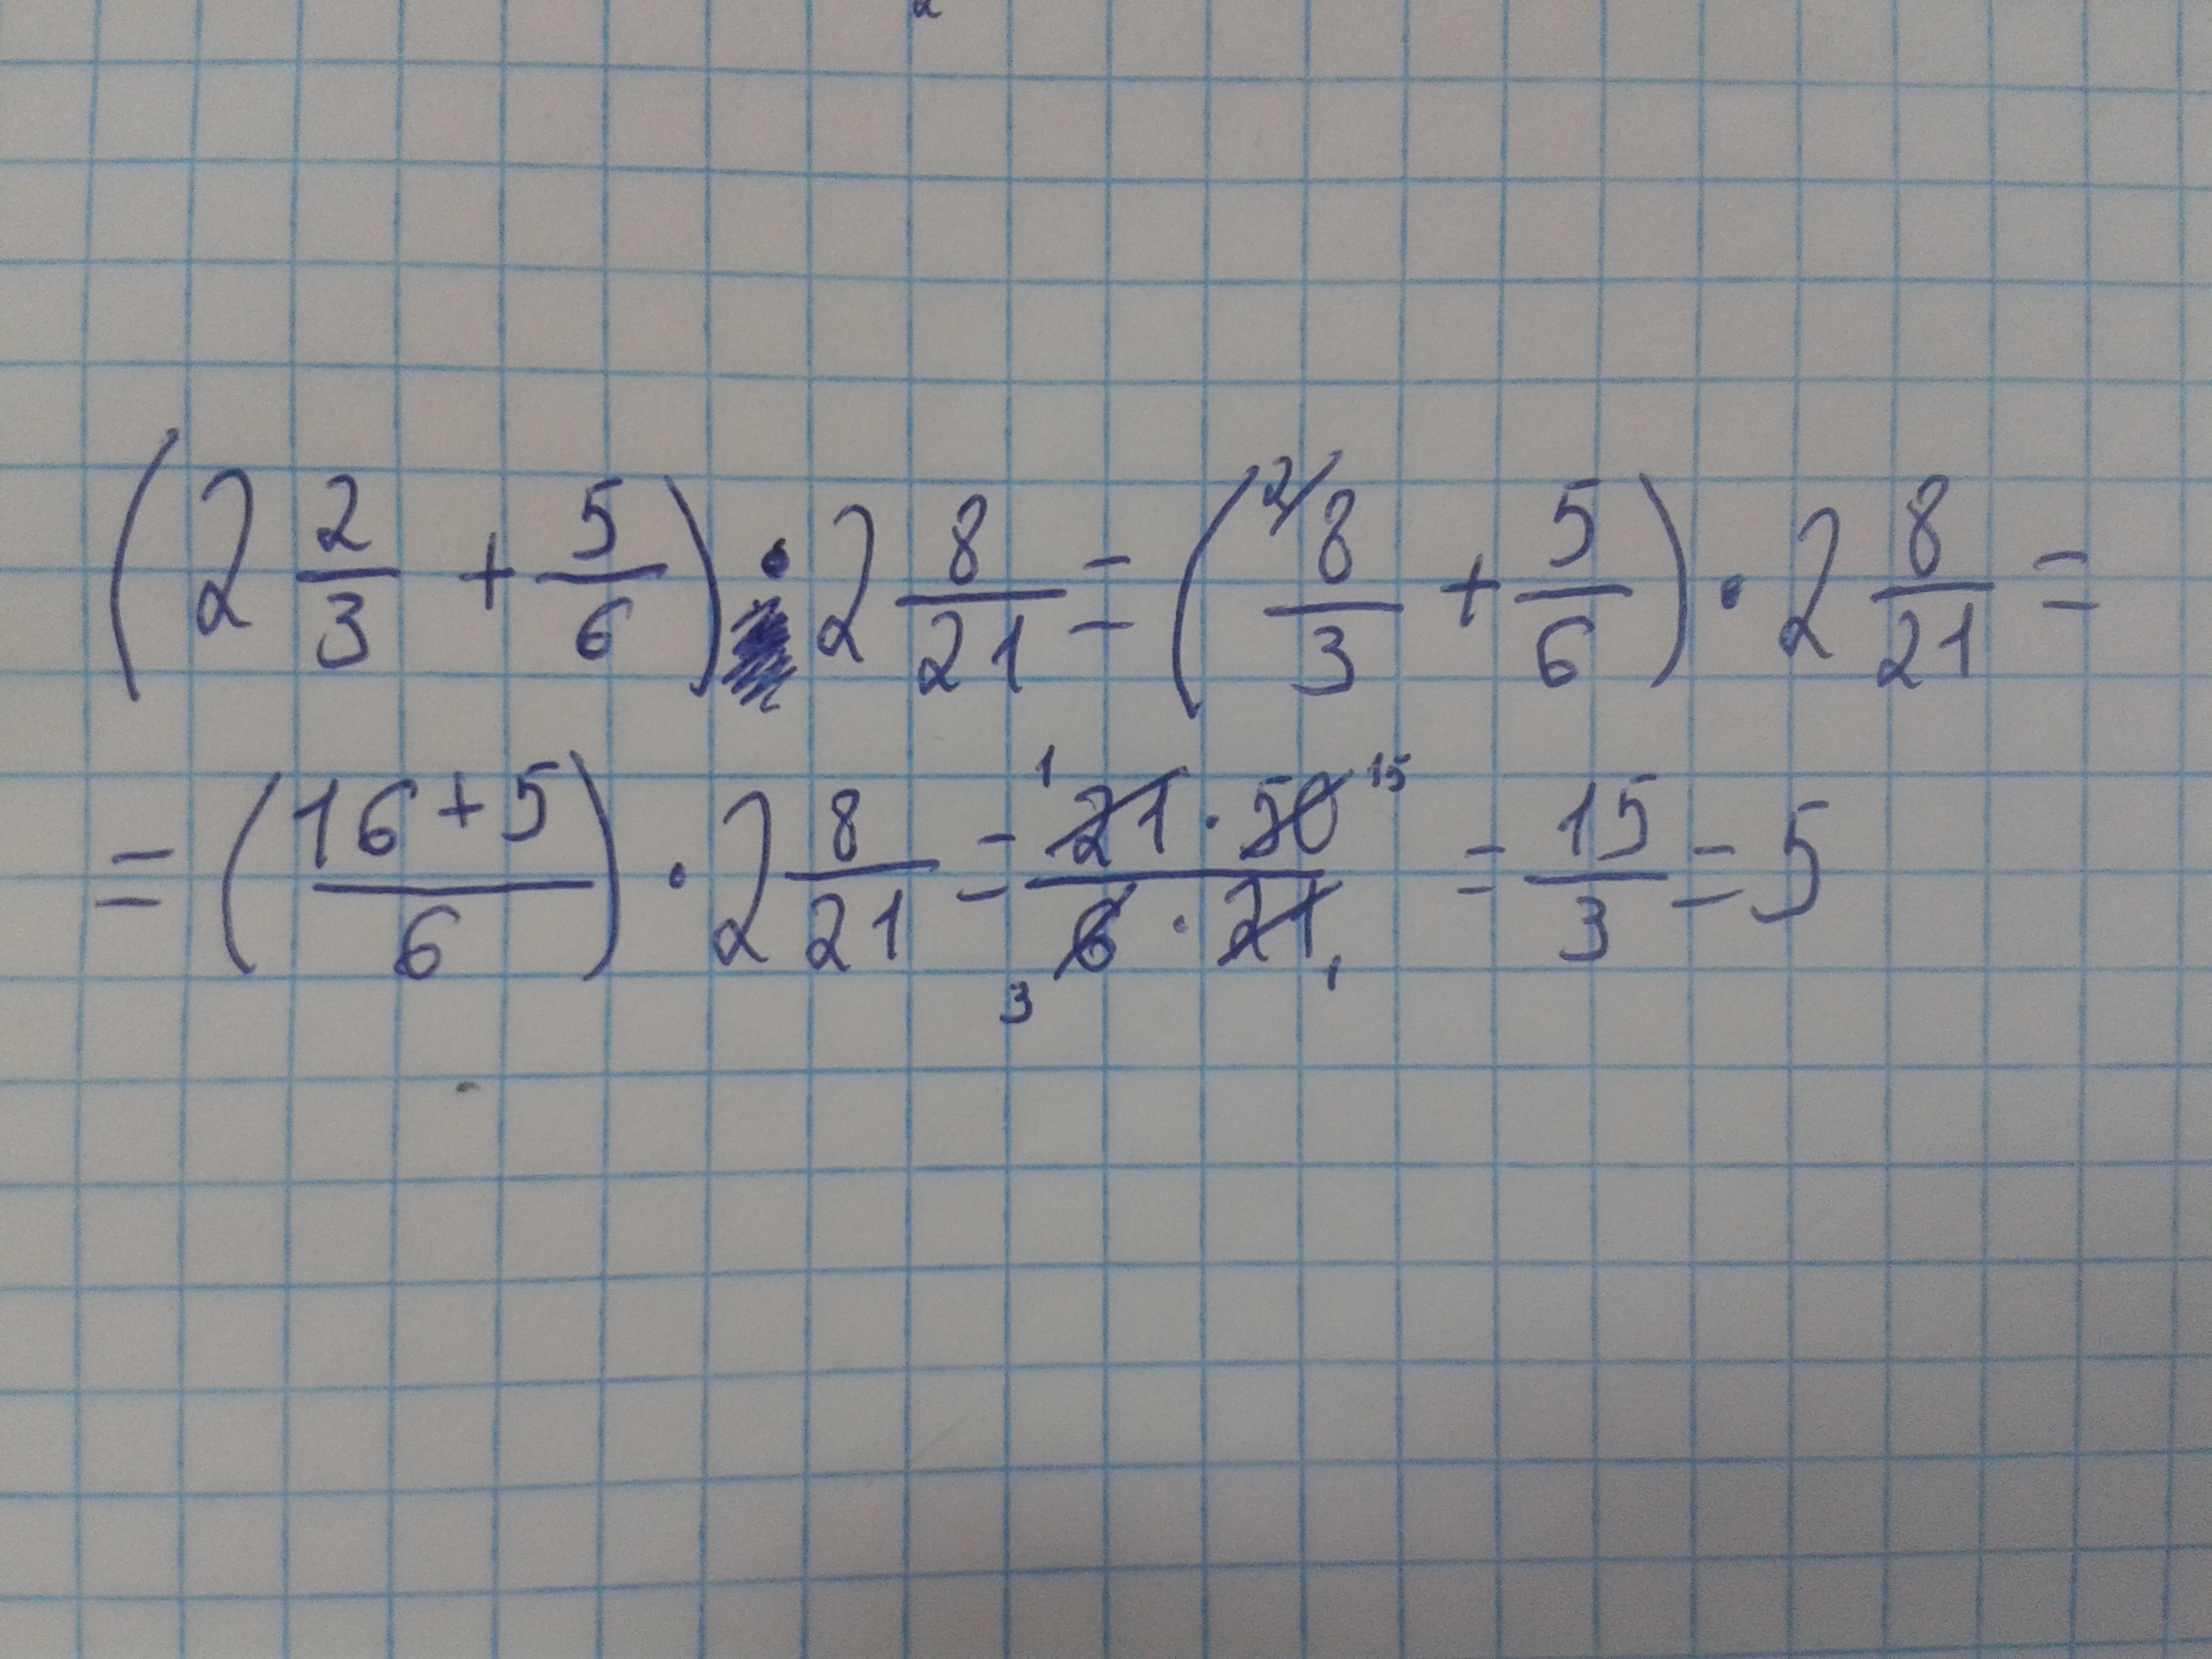 (2 2/3 + 5/6) · 2 8/21 = (2/ 8/3 + 5/6) · 2 8/21 =
= ((16+5)/6) · 2 8/21 = 1 21 · 50 15 / 3 6 · 21 1 = 15/3 = 5